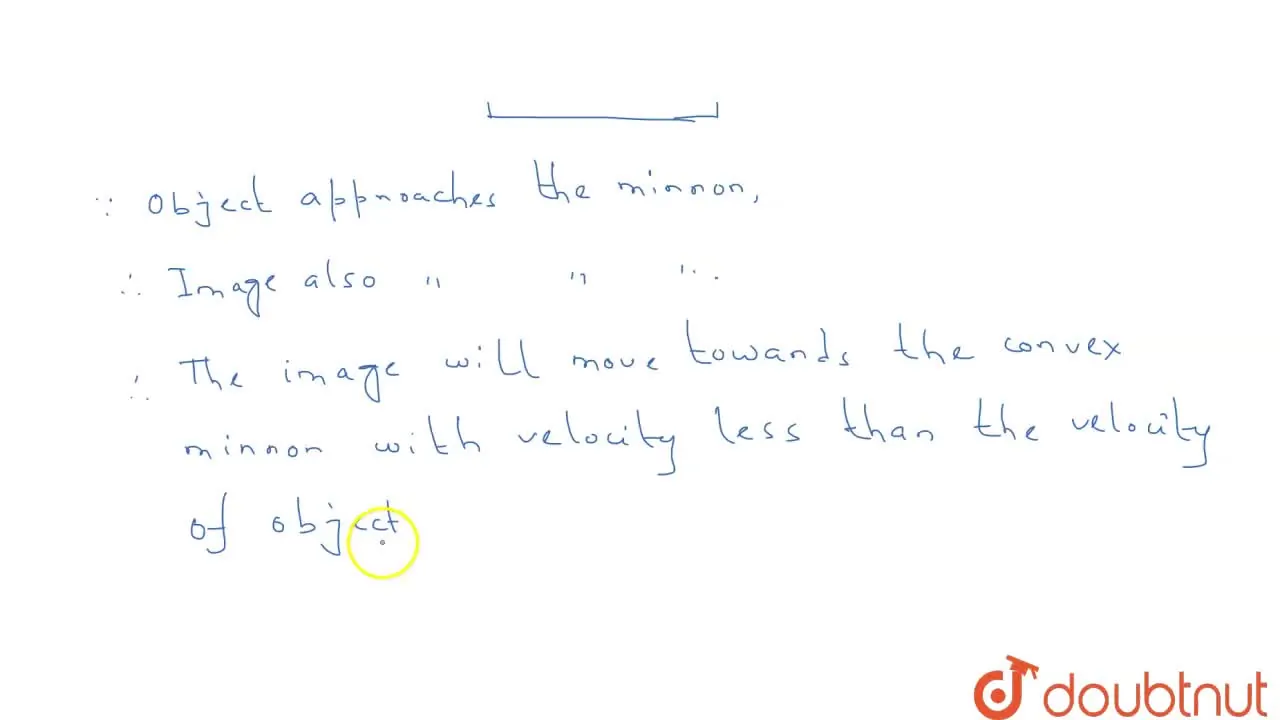 ∵ Object approaches the mirror,
∴ Image also " " ".
∴ The image will move towards the convex
mirror with velocity less than the velocity
of object
doubtnut